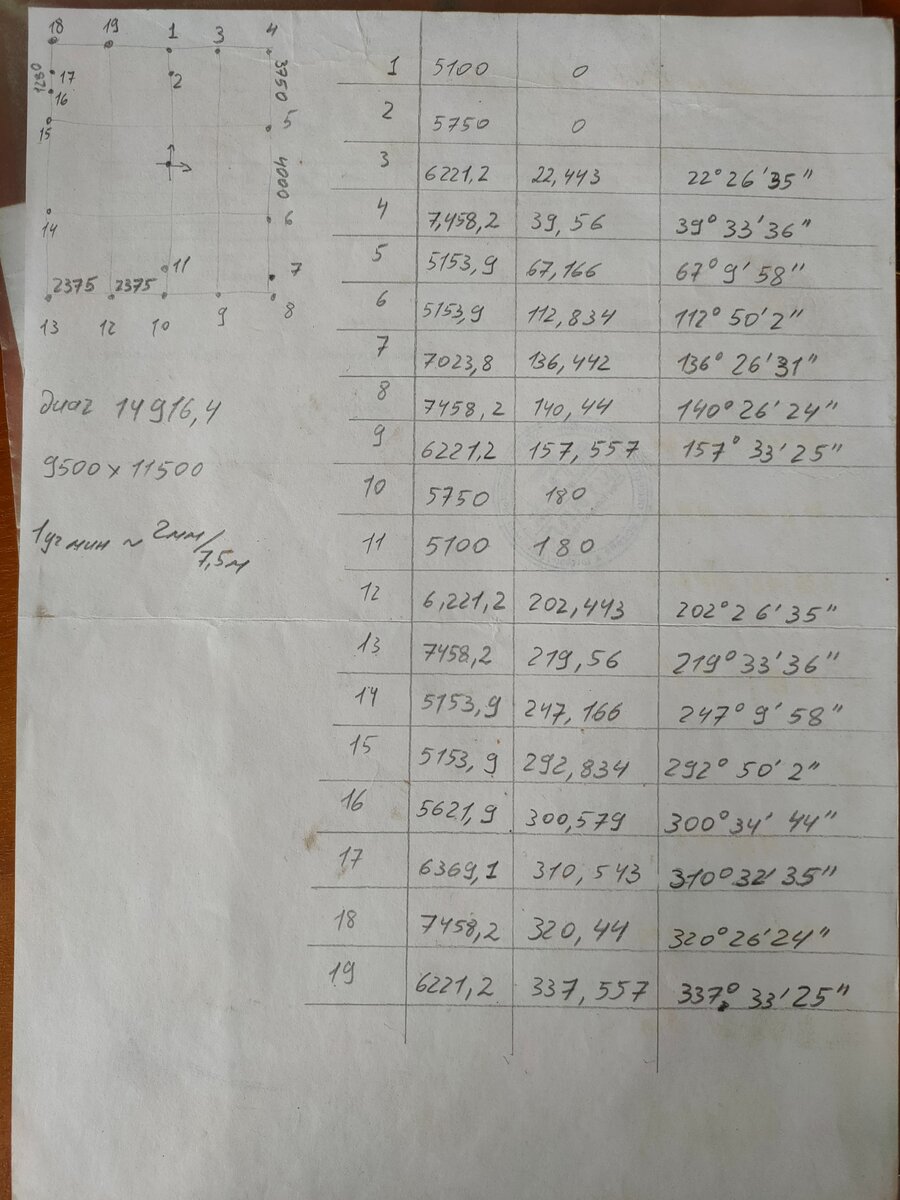 18 19 1 3 4
1280 17 2 3750
16
15 5
4000
14 6
11 7
2375 2375
13 12 10 9 8
диаг 14916,4
9500 x 11500
1 уг мин ~ 2мм/7,5м
1 5100 0
2 5750 0
3 6221,2 22,443 22° 26' 35"
4 7,458,2 39,56 39° 33' 36"
5 5153,9 67,166 67° 9' 58"
6 5153,9 112,834 112° 50' 2"
7 7023,8 136,442 136° 26' 31"
8 7458,2 140,44 140° 26' 24"
9 6221,2 157,557 157° 33' 25"
10 5750 180
11 5100 180
12 6,221,2 202,443 202° 26' 35"
13 7458,2 219,56 219° 33' 36"
14 5153,9 247,166 247° 9' 58"
15 5153,9 292,834 292° 50' 2"
16 5621,9 300,579 300° 34' 44"
17 6369,1 310,543 310° 32' 35"
18 7458,2 320,44 320° 26' 24"
19 6221,2 337,557 337° 33' 25"